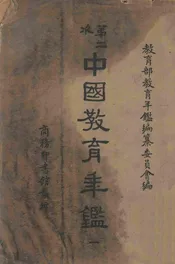 教育部教育年鑑編纂委員會編
第二次
中國教育年鑑
一
商務印書館發行